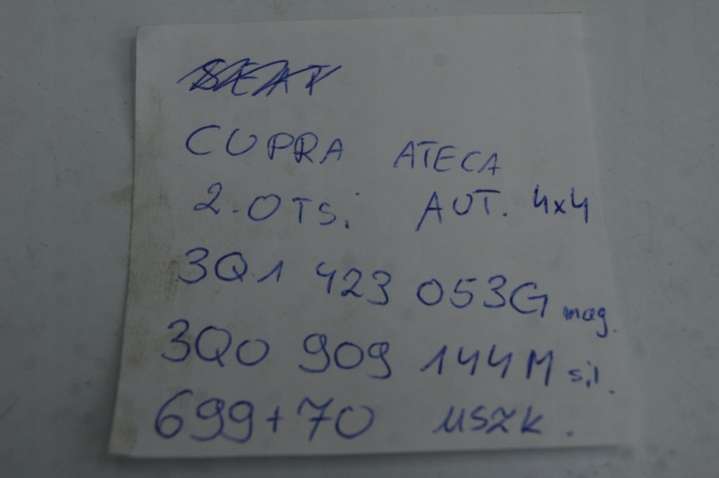 SEAT
CUPRA ATECA
2.0TSi AUT. 4x4
3Q1 423 053G mag.
3Q0 909 144M sil.
699+70 USZK.